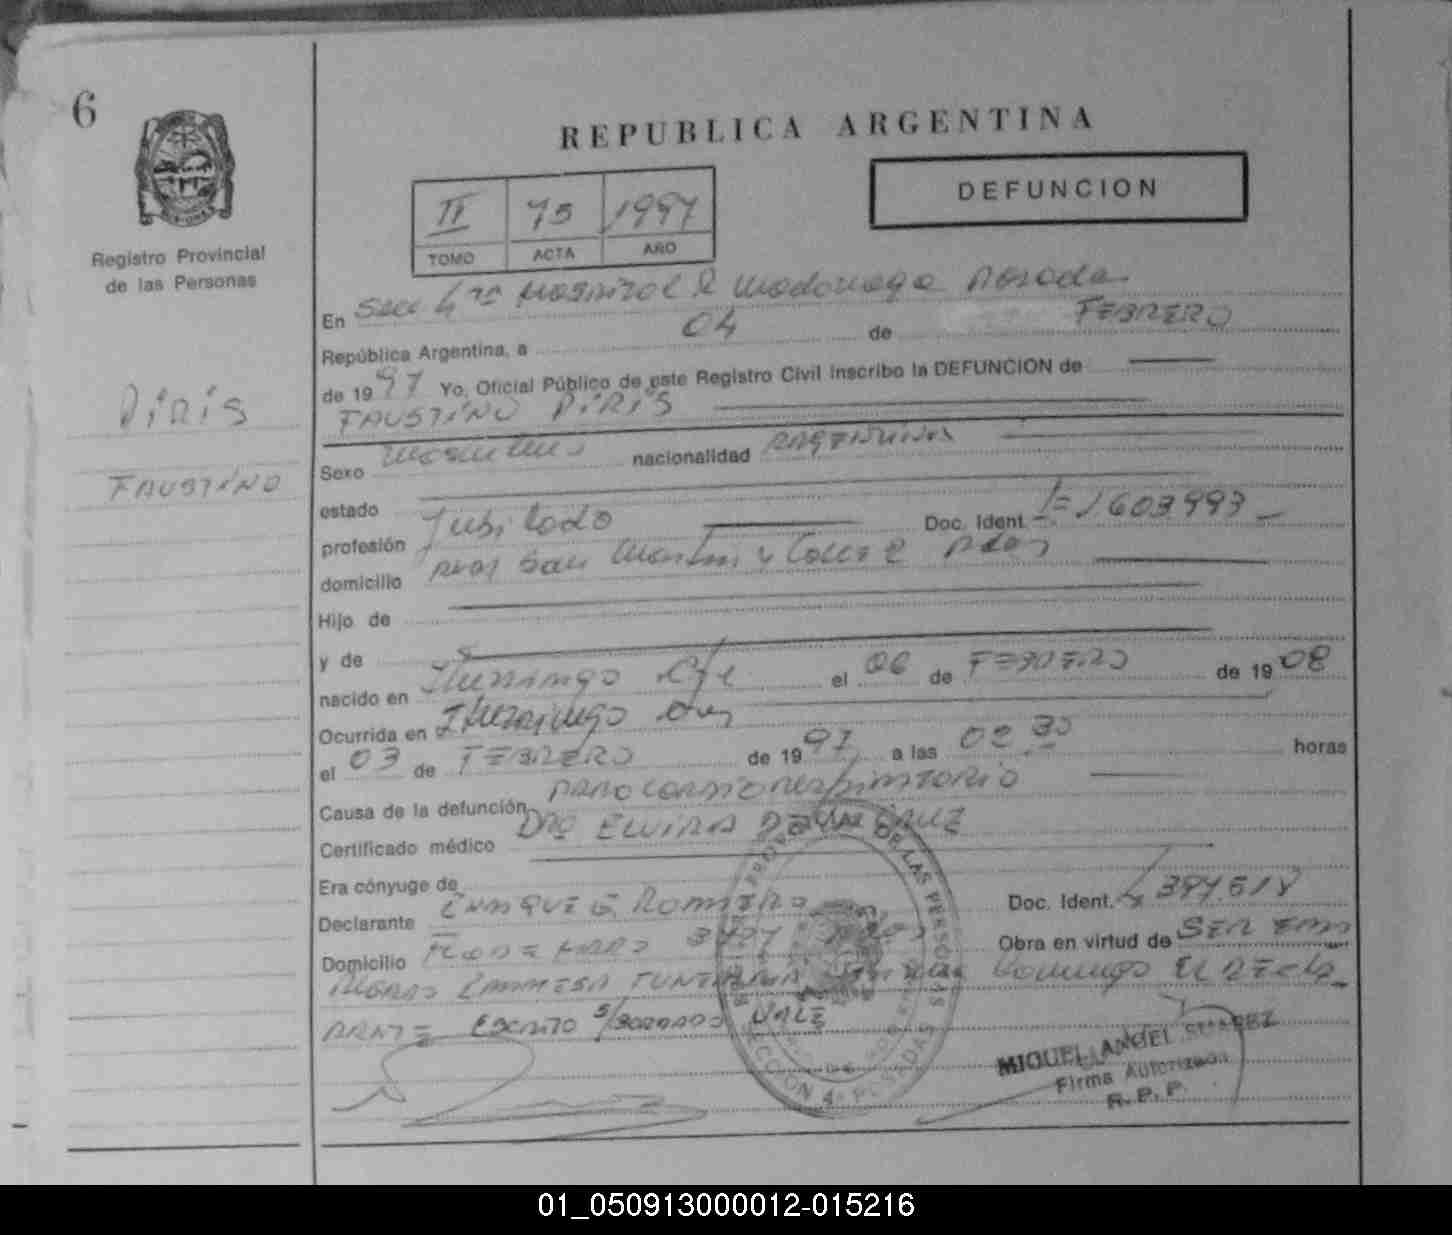 6
REPUBLICA ARGENTINA
DEFUNCION
II 75 1997
TOMO ACTA AÑO
Registro Provincial
de las Personas
PIRIS
FAUSTINO
En Secc 4ta Hospital R Madariaga Posadas
República Argentina, a 04 de FEBRERO
de 1997 Yo, Oficial Público de este Registro Civil inscribo la DEFUNCION de
FAUSTINO PIRIS
Sexo masculino nacionalidad ARGENTINA
estado
profesión Jubilado Doc. Ident. 1603993
domicilio San Martin y Calle 2 Pdas
Hijo de
y de
nacido en Ituzaingo el 06 de FEBRERO de 1908
Ocurrida en Ituzaingo
el 03 de FEBRERO de 1997 a las 30 horas
Causa de la defunción PARO CARDIORESPIRATORIO
Certificado médico DRA ELVIRA DE LA CRUZ
Era cónyuge de
Declarante ENRIQUE G ROMERO Doc. Ident.
Domicilio Obra en virtud de SER
EMPRESA FUNEBRE
ESCRITO S/BORRADO VALE
REGISTRO PROVINCIAL DE LAS PERSONAS
SECCION 4a POSADAS
MIGUEL ANGEL SUAREZ
Firma Autorizada
R. P. P.
01_050913000012-015216